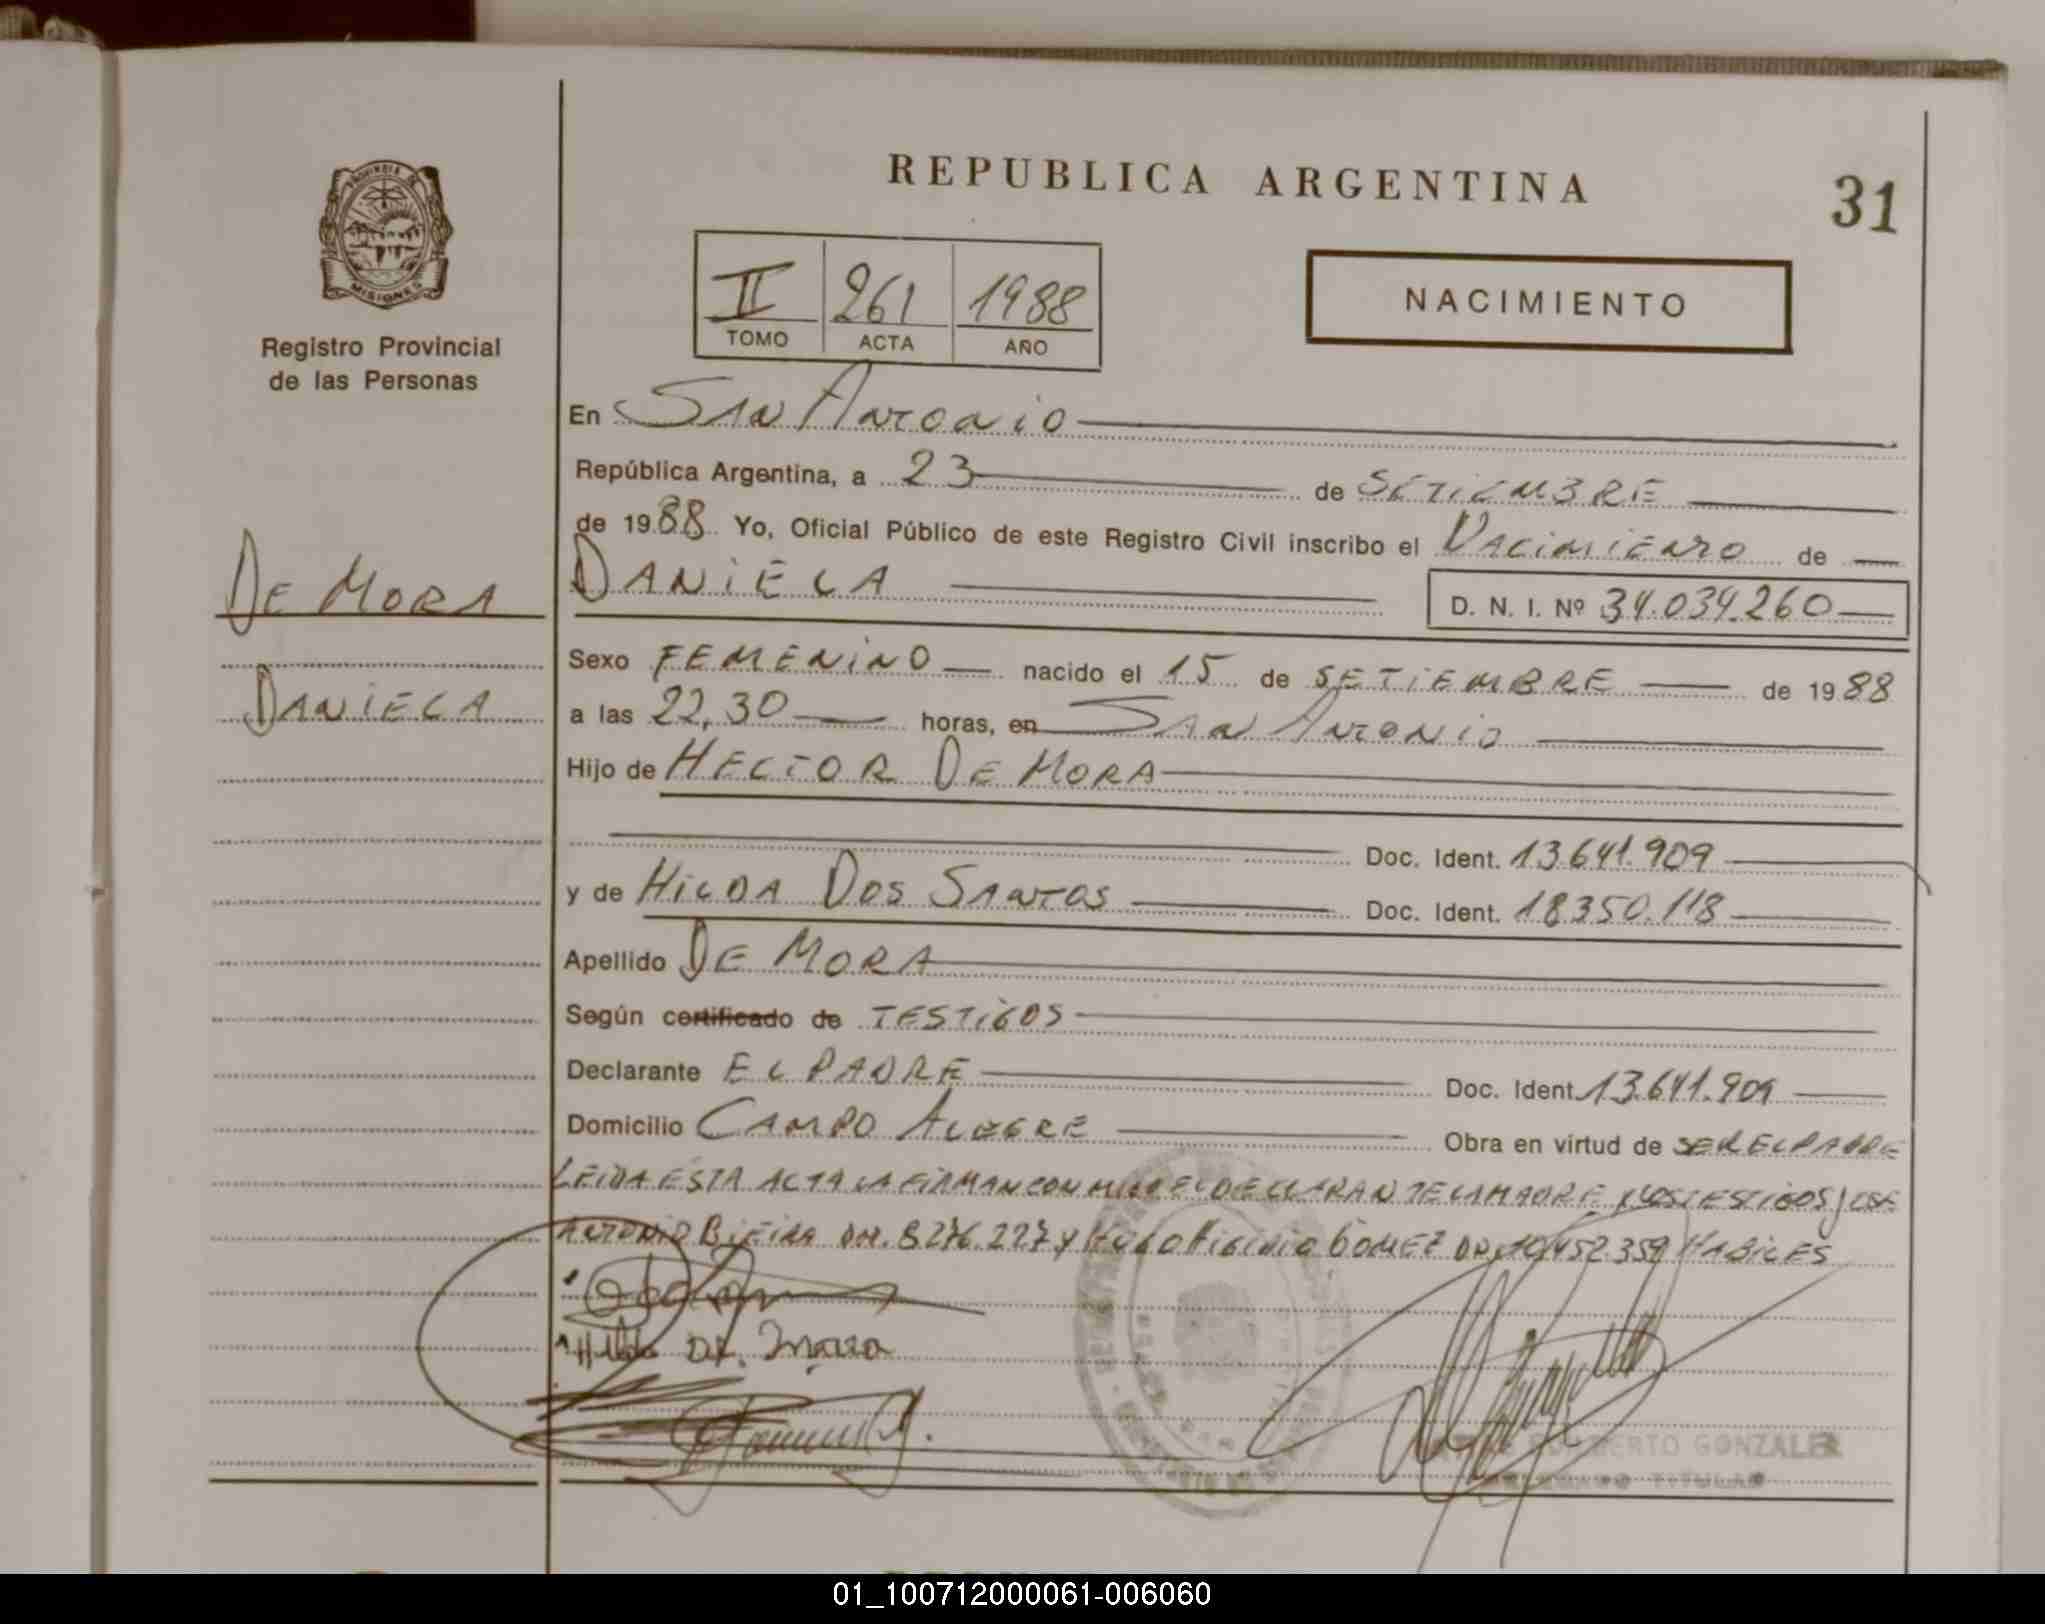 REPUBLICA ARGENTINA
31
PROVINCIA DE
MISIONES
Registro Provincial
de las Personas
II 261 1988
TOMO ACTA AÑO
NACIMIENTO
DE MORA
DANIELA
En SAN ANTONIO
República Argentina, a 23 de SETIEMBRE
de 1988 Yo, Oficial Público de este Registro Civil inscribo el NACIMIENTO de
DANIELA D. N. I. Nº 34.034.260
Sexo FEMENINO nacido el 15 de SETIEMBRE de 1988
a las 22,30 horas, en SAN ANTONIO
Hijo de HECTOR DE MORA
Doc. Ident. 13.641.909
y de HILDA DOS SANTOS Doc. Ident. 18.350.118
Apellido DE MORA
Según certificado de TESTIGOS
Declarante EL PADRE Doc. Ident. 13.641.909
Domicilio CAMPO ALEGRE Obra en virtud de SER EL PADRE
LEIDA ESTA ACTA LA FIRMAN CON MIGO EL DECLARANTE LA MADRE Y LOS TESTIGOS JOSE
ANTONIO DNI. 8.276.227 Y HUGO GOMEZ DNI 10.452.359 HABILES
GONZALEZ
TITULAR
01_100712000061-006060